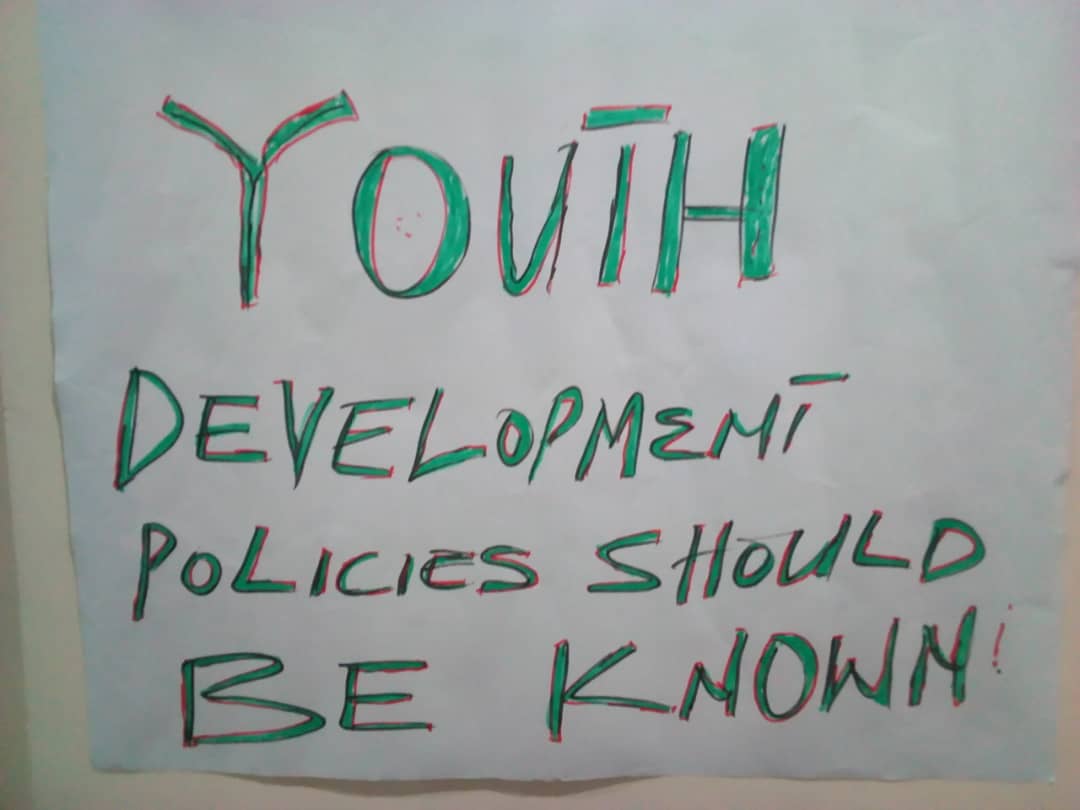 YOUTH
DEVELOPMENT
POLICIES SHOULD
BE KNOWN!